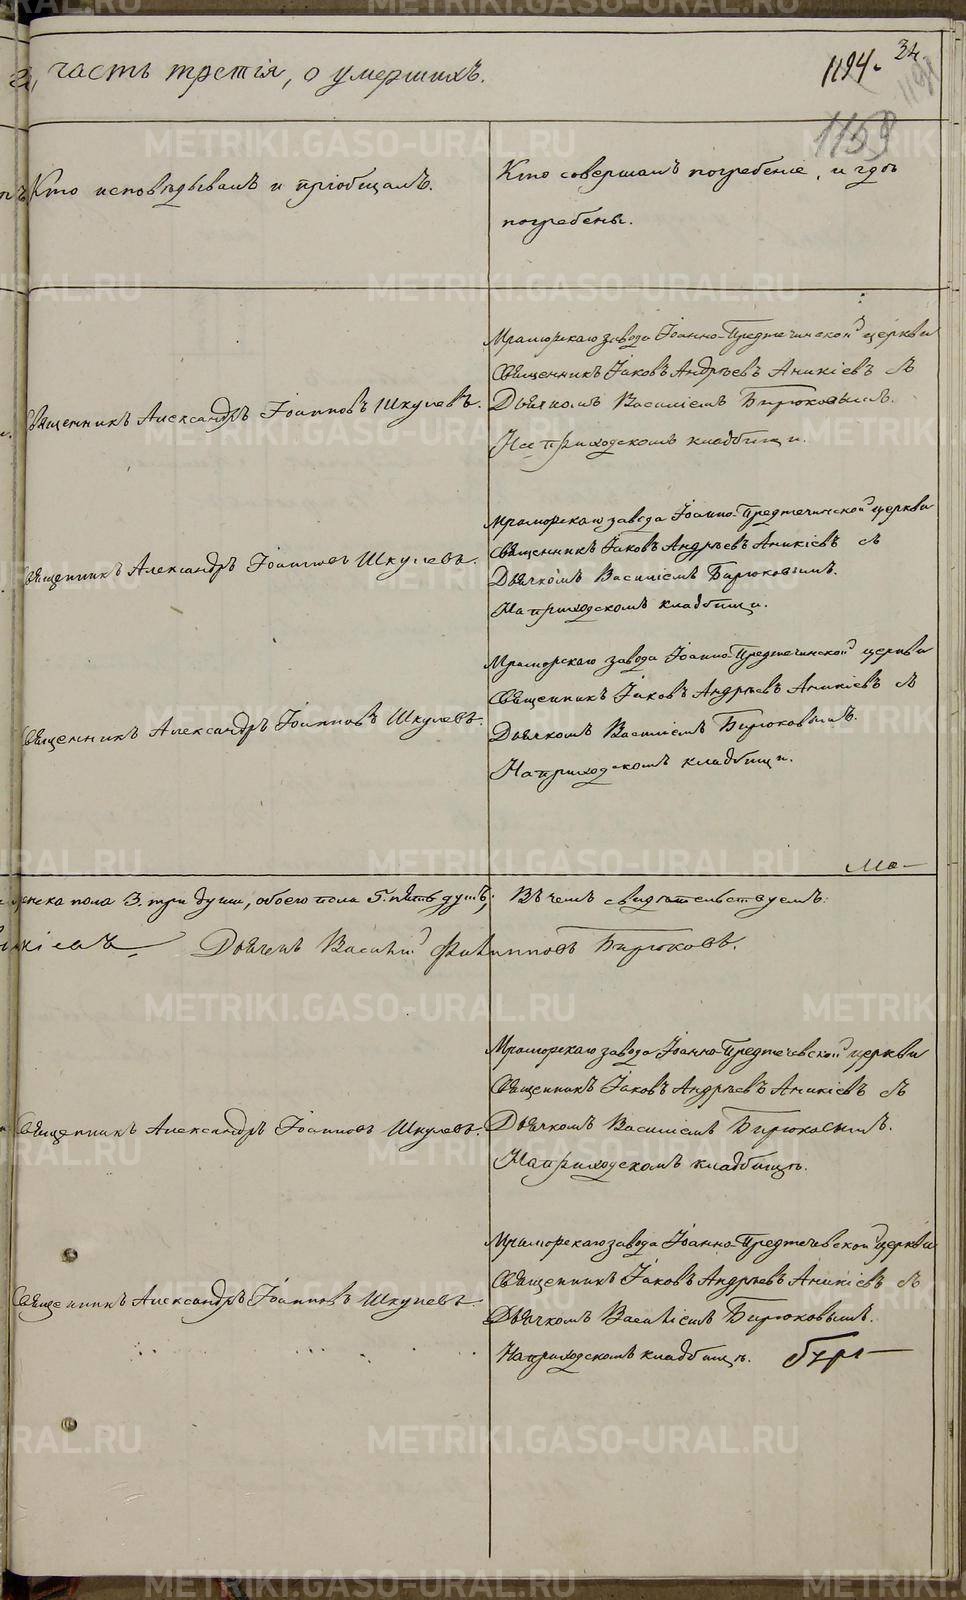 часть третія, о умершихъ.
1194.
34
1159
Кто исповѣдывалъ и пріобщалъ.
Кто совершалъ погребеніе, и гдѣ
погребены.
Мраморскаго завода Іоанно-Предтечинской церкви
Священникъ Іаковъ Андреевъ Аникіевъ съ
Священникъ Александръ Іоанновъ Шкулевъ.
Дьячкомъ Василіемъ Бирюковымъ.
На приходскомъ кладбищи.
Мраморскаго завода Іоанно-Предтечинской церкви
Священникъ Іаковъ Андреевъ Аникіевъ съ
Священникъ Александръ Іоанновъ Шкулевъ.
Дьячкомъ Василіемъ Бирюковымъ.
На приходскомъ кладбищи.
Мраморскаго завода Іоанно-Предтечинской церкви
Священникъ Іаковъ Андреевъ Аникіевъ съ
Священникъ Александръ Іоанновъ Шкулевъ.
Дьячкомъ Василіемъ Бирюковымъ.
На приходскомъ кладбищи.
Ма-
женска пола 3. три души, обоего пола 5. пять душъ; Въ чемъ свидѣтельствуемъ:
Дьячекъ Василій Филипповъ Бирюковъ.
Мраморскаго завода Іоанно-Предтечевской церкви
Священникъ Іаковъ Андреевъ Аникіевъ съ
Священникъ Александръ Іоанновъ Шкулевъ.
Дьячкомъ Василіемъ Бирюковымъ.
На приходскомъ кладбищѣ.
Мраморскаго завода Іоанно-Предтечевской церкви
Священникъ Іаковъ Андреевъ Аникіевъ съ
Священникъ Александръ Іоанновъ Шкулевъ.
Дьячкомъ Василіемъ Бирюковымъ.
На приходскомъ кладбищѣ.
METRIKI.GASO-URAL.RU